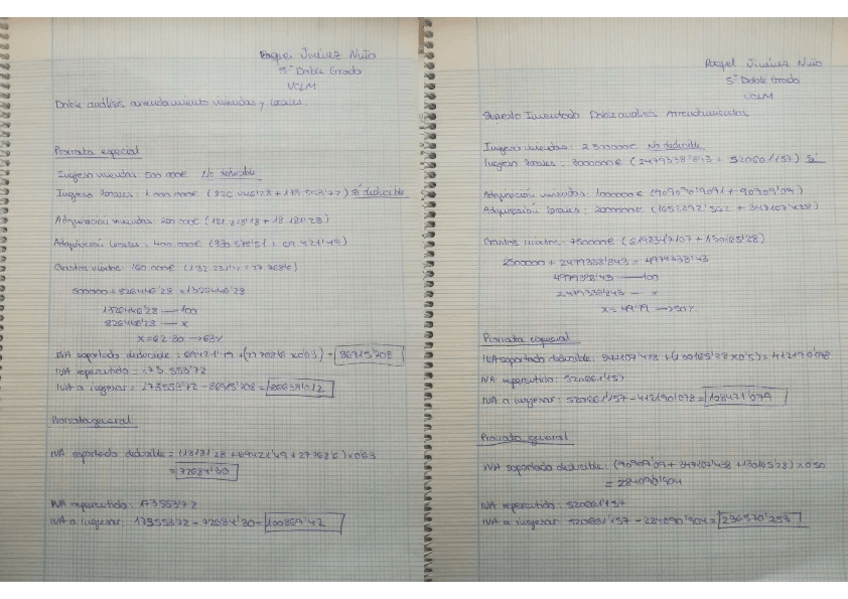 Raquel Jiménez Niño
5º Doble Grado
UCLM
Doble análisis arrendamiento viviendas y locales.
Prorrata especial
Ingreso viviendas: 500 000€ No deducible
Ingreso locales: 1 000 000€ (826 446'28 + 173 553'72) Sí deducible
Adquisición viviendas: 200 000€
Adquisición locales: 400 000€ (330 578'51 + 69 421'49)
Gastos mixtos: 160 000€
500000 + 826446'28 = 1326446'28
1326446'28 — 100
826446'28 — x
x = 62'30 → 63%
IVA soportado deducible: 69421'49 + (27768'6 x 0'63) = 86915'708
IVA repercutido = 173 553'72
IVA a ingresar = 173553'72 - 86915'708 =
Prorrata general
IVA soportado deducible = ( + 69421'49 + 27768'6) x 0'63
= 72684'30
IVA repercutido: 173553'72
IVA a ingresar: 173553'72 - 72684'30 = 100869'42
Raquel Jiménez Niño
5º Doble Grado
UCLM
Supuesto Inventado. Doble análisis Arrendamientos
Ingreso viviendas: 2 500000€ No deducible
Ingreso locales: 3000000€ (2479338'843 + 520661'157) Sí
Adquisición viviendas: 1000000€ (909090'9091 + 90909'09)
Adquisición locales: 2000000€ (1652892'562 + 347107'438)
Gastos mixtos: 750000€ (619834'7107 + 130165'28)
2500000 + 2479338'843 = 4979338'843
4979338'843 — 100
2479338'843 — x
x = 49'79 → 50%
Prorrata especial
IVA soportado deducible: 347107'438 + (130165'28 x 0'5) = 412190'078
IVA repercutido: 520661'157
IVA a ingresar: 520661'157 - 412190'078 = 108471'079
Prorrata general
IVA soportado deducible: (90909'09 + 347107'438 + 130165'28) x 0'50
= 284090'904
IVA repercutido: 520661'157
IVA a ingresar: 520661'157 - 284090'904 = 236570'253